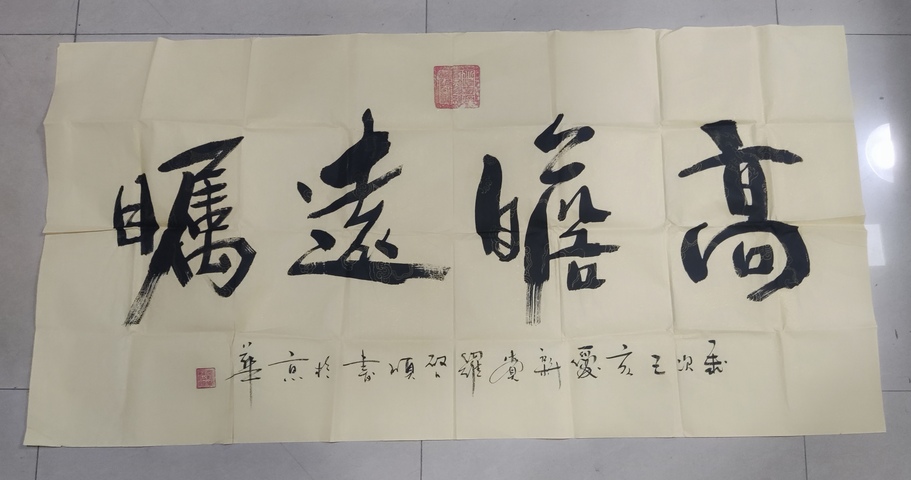 高瞻遠矚
歲次己亥愛新覺羅啓頌書於京華